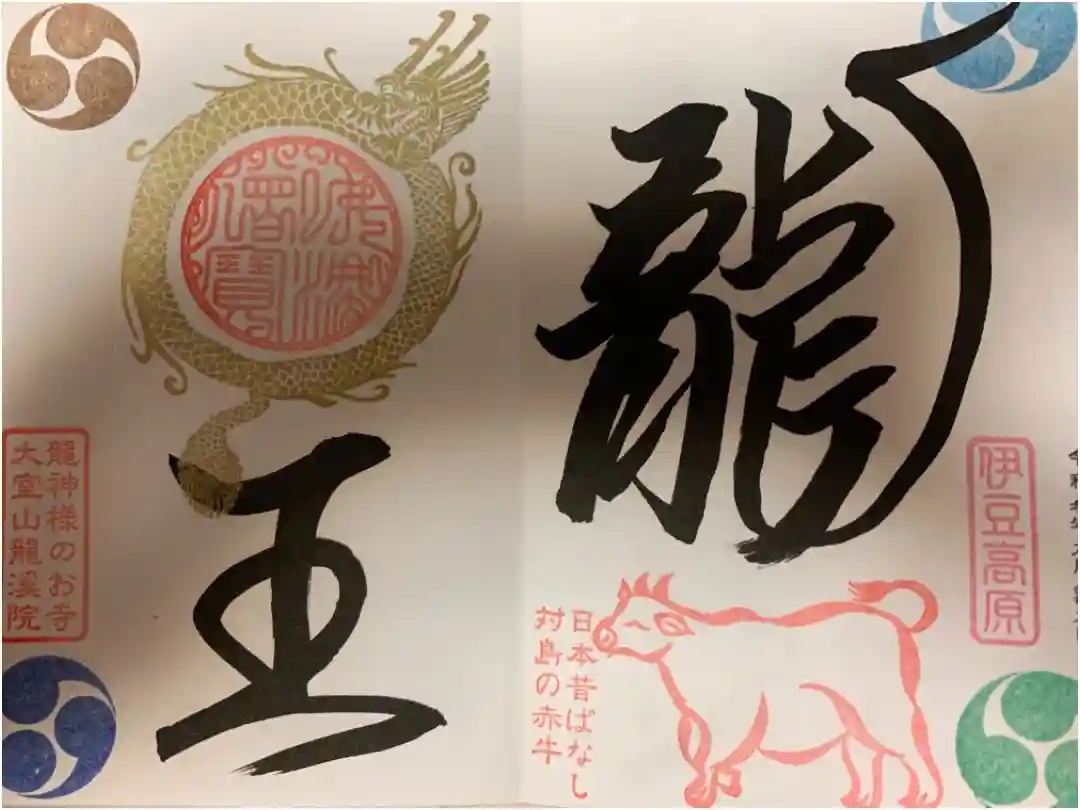 龍
王
伊豆高原
日本昔ばなし
対島の赤牛
佛法
僧寶
龍神様のお寺
大室山龍溪院